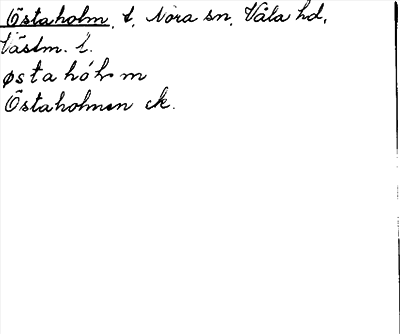 Östaholm, t, Nora sn, Våla hd,
Västm. l.
østa hóh m
Östaholmen ek.